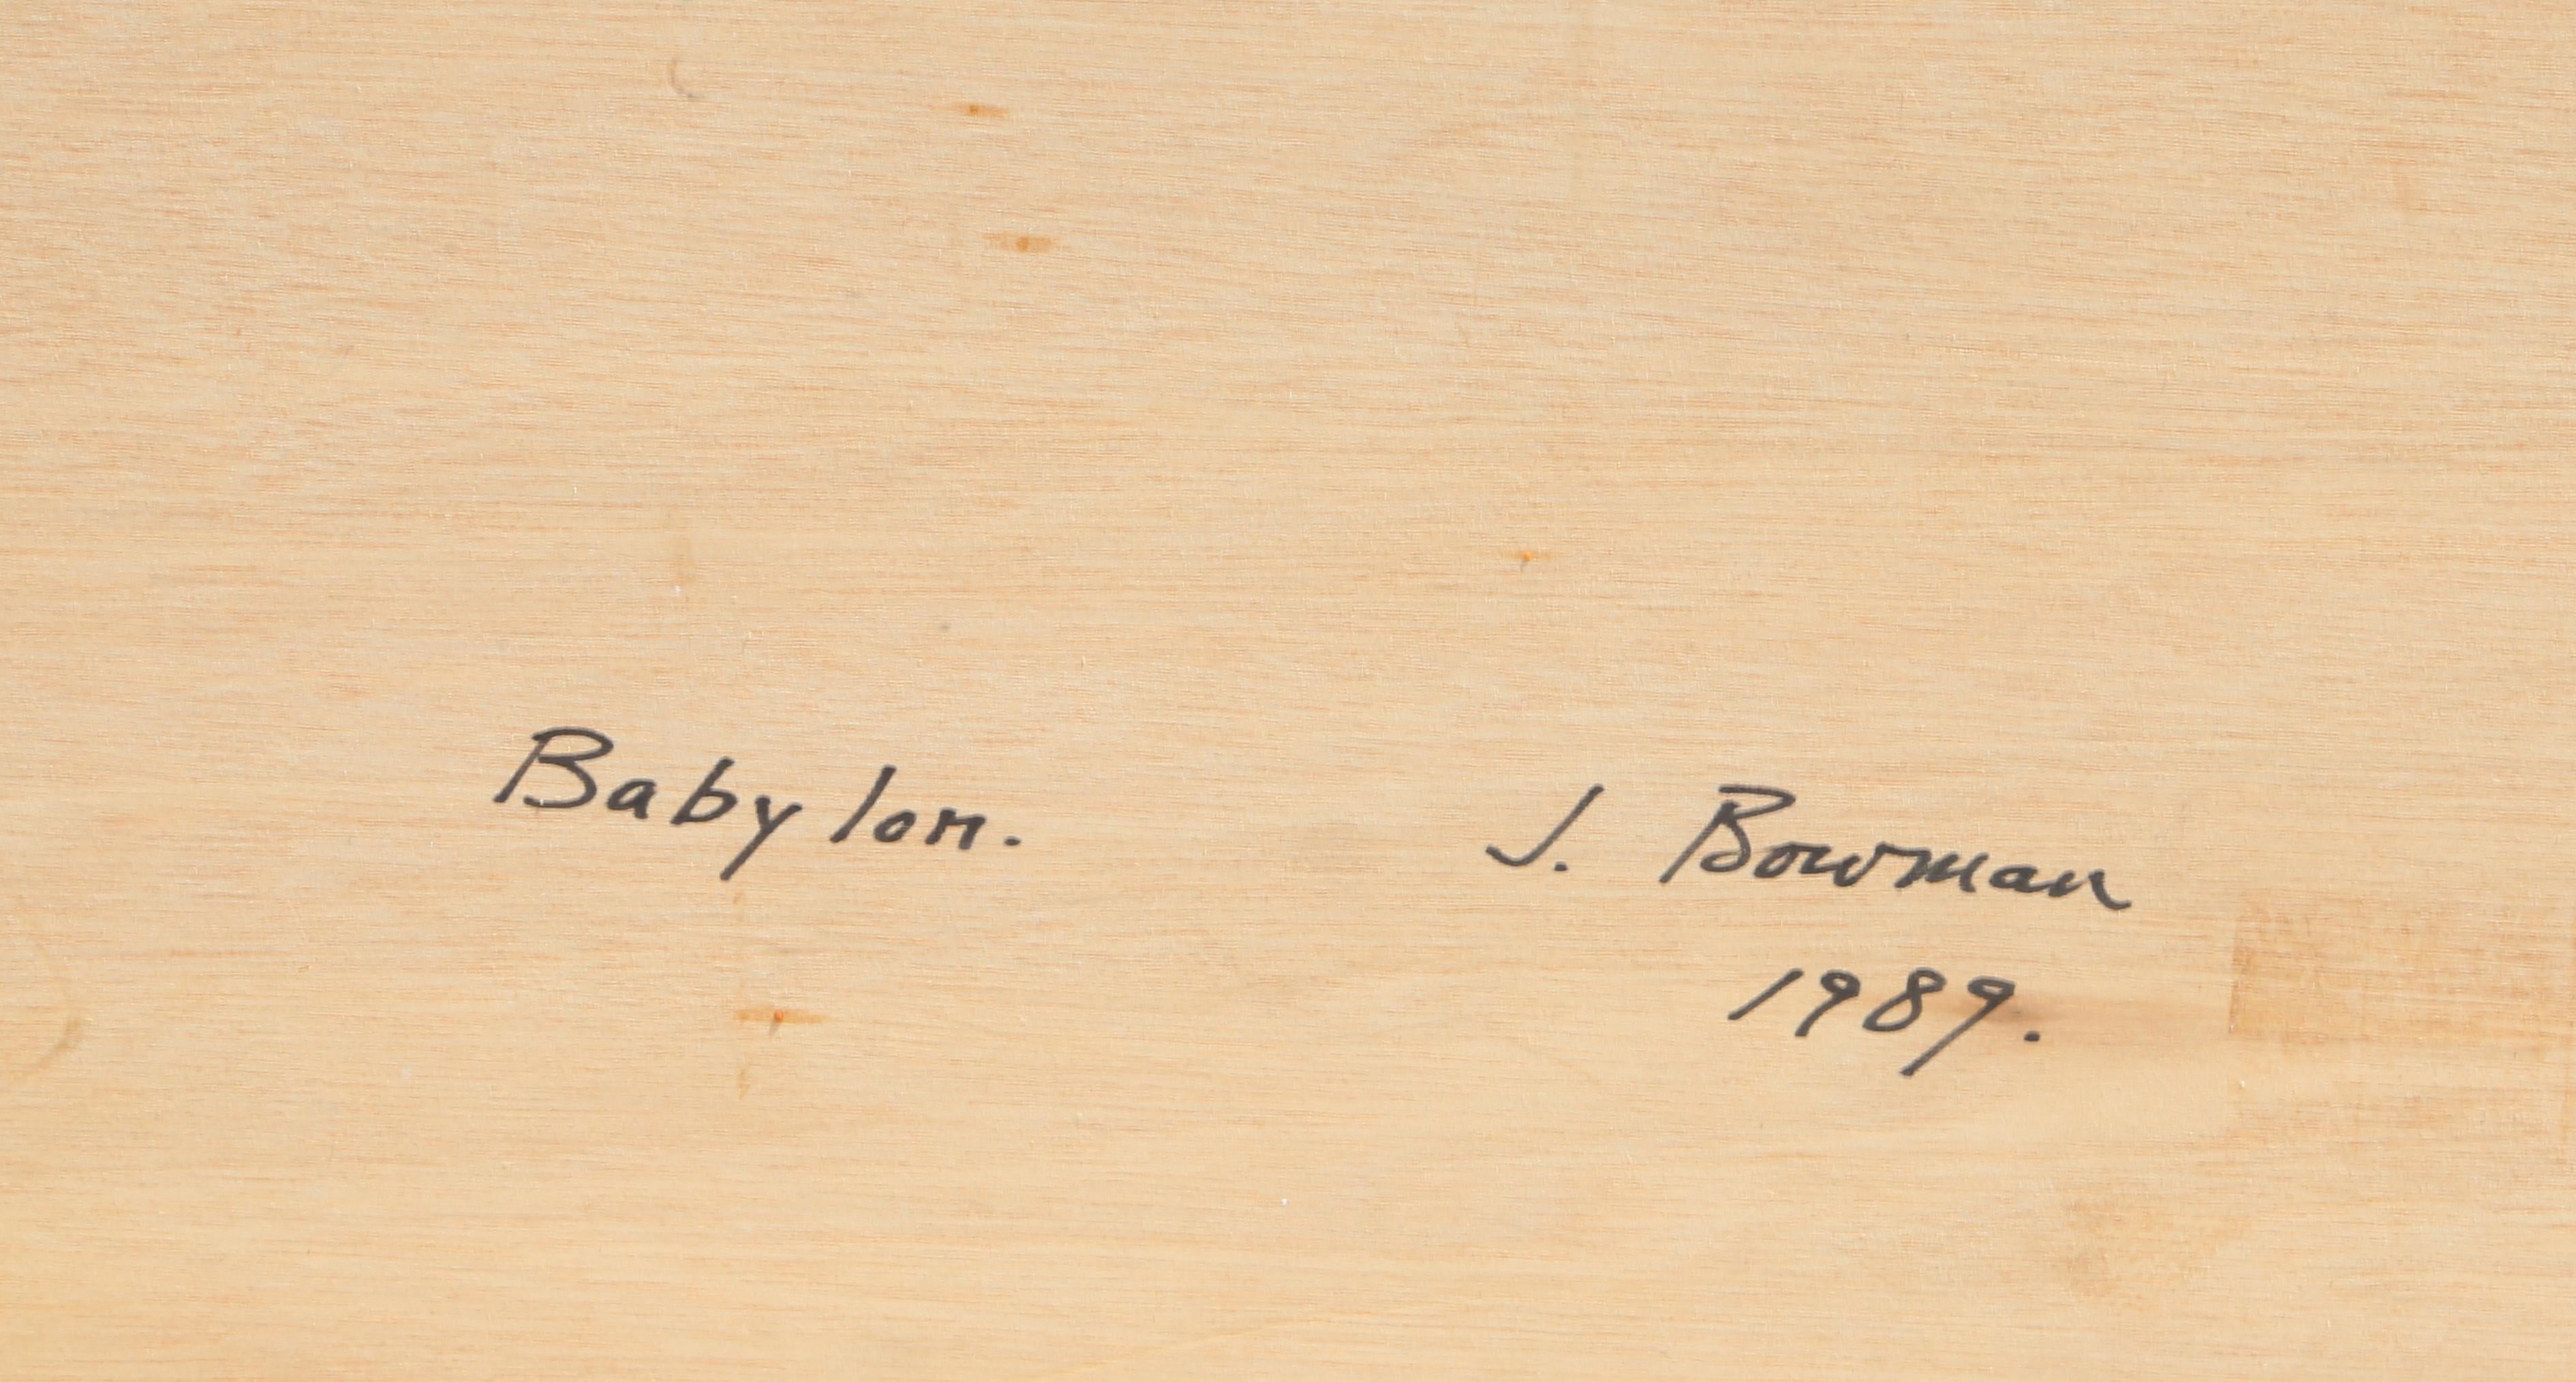 Babylon.
J. Bowman
1989.